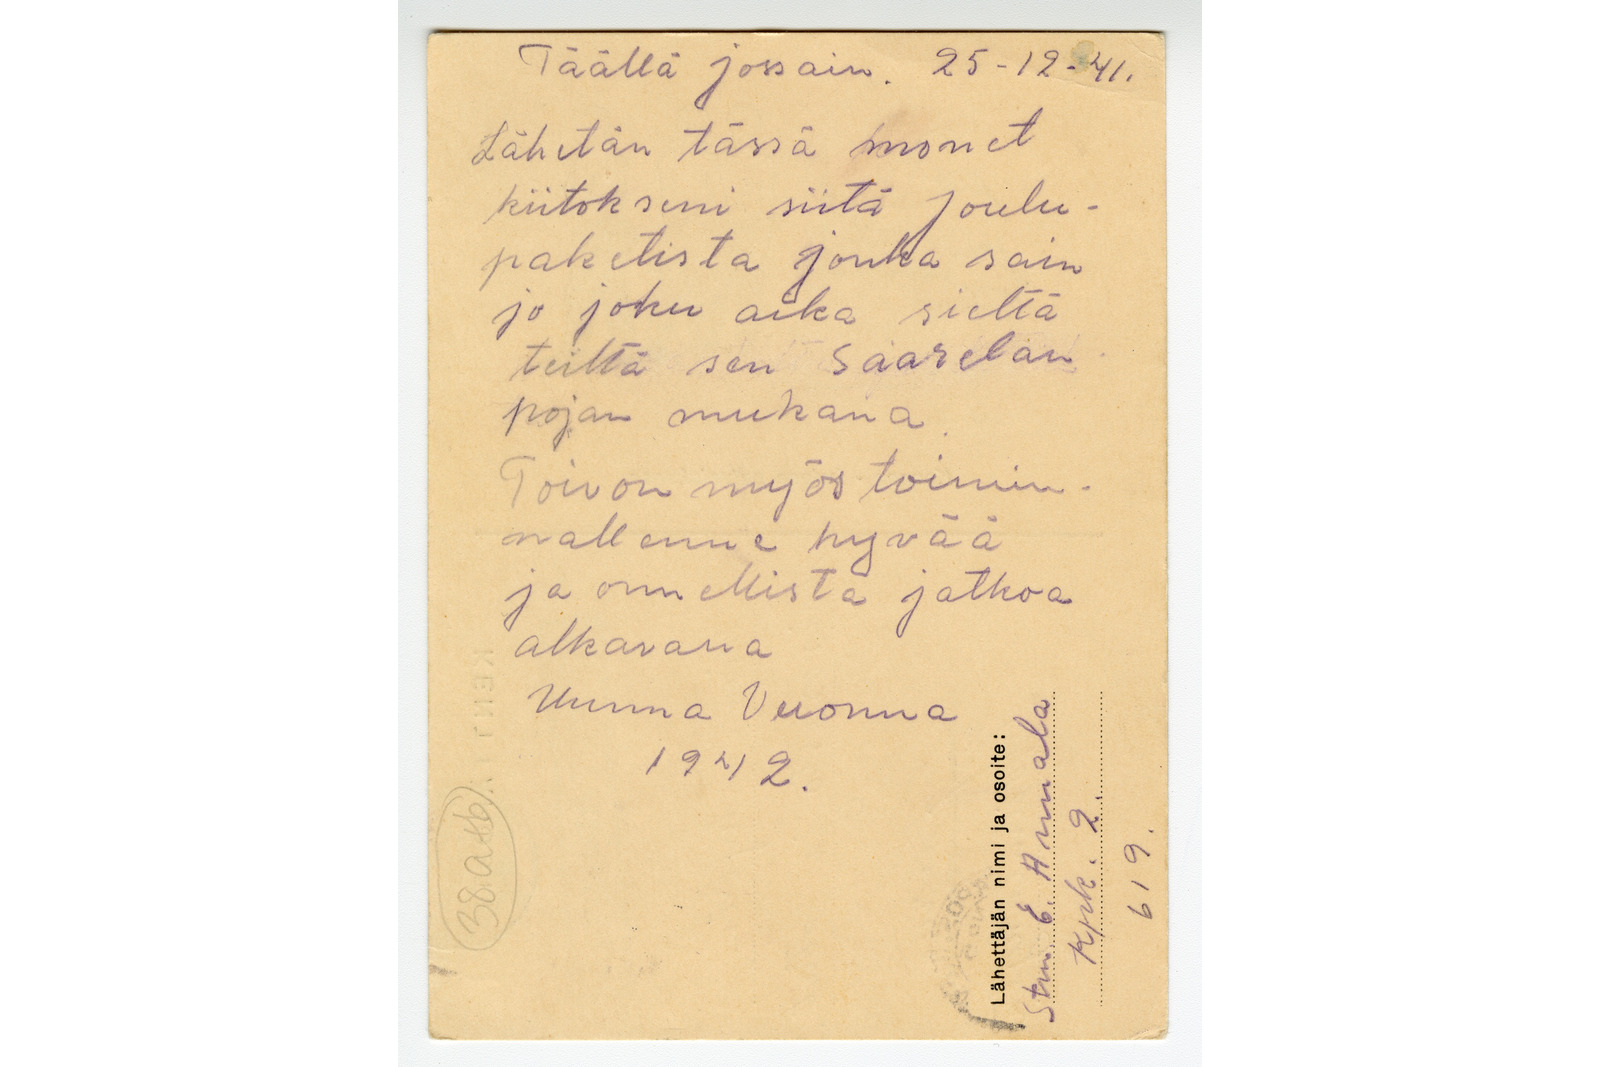 Täällä jossain. 25-12-41.
Lähetän tässä monet
kiitokseni siitä joulu-
paketista jonka sain
jo joku aika sieltä
teiltä sen Saarelan
pojan mukana.
Toivon myös toimin-
nallenne hyvää
ja onnellista jatkoa
alkavana
Uunna Vuonna
1942.
Lähettäjän nimi ja osoite:
Stm. E. Annala
Kpk. 2.
619.
38 a+b